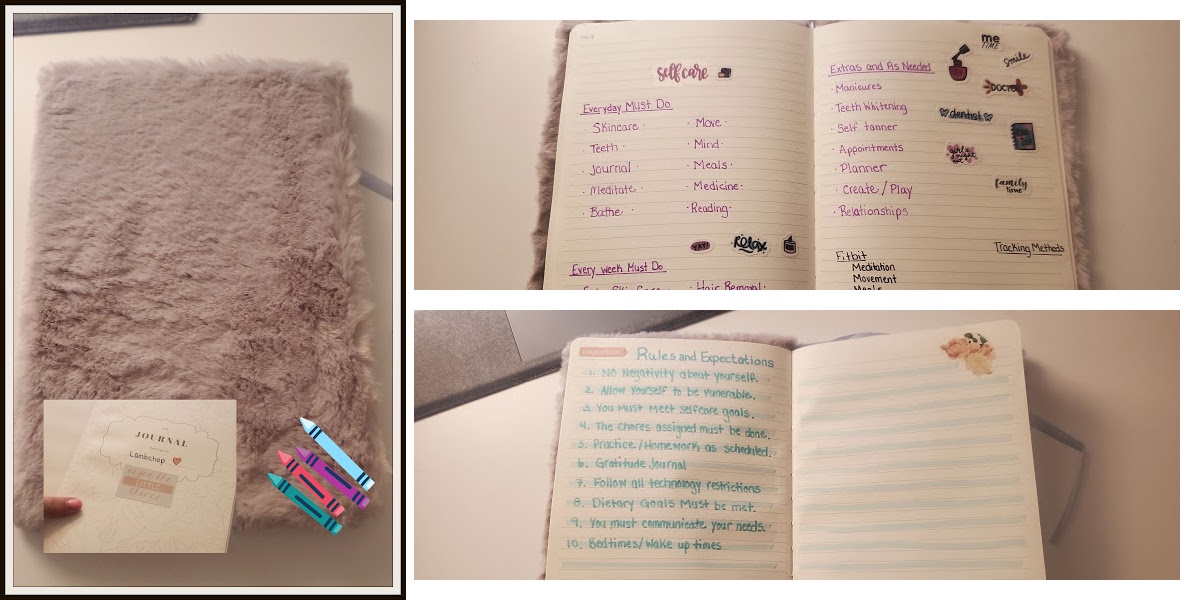 JOURNAL
Lambchop
LITTLE
DATE
selfcare
Everyday Must Do
Skincare ·
· Teeth ·
· Journal ·
· Meditate ·
· Bathe ·
· Move ·
· Mind ·
· Meals ·
· Medicine ·
· Reading ·
YAY!
Relax
Every week Must Do
· Hair Removal ·
me
TIME
smile
Extras and As Needed
· Manicures
· Teeth Whitening
· Self tanner
· Appointments
· Planner
· Create / Play
· Relationships
DOCTOR
dentist
family
time
Tracking Methods
Fitbit
Meditation
Movement
Meals
Rules and Expectations
1. No Negativity about yourself.
2. Allow Yourself to be vunerable.
3. You Must Meet selfcare goals.
4. The chores assigned must be done.
5. Practice/Homework as scheduled.
6. Gratitude Journal
7. Follow all technology restrictions
8. Dietary Goals Must be met.
9. You must communicate your needs.
10. Bedtimes/Wake up times